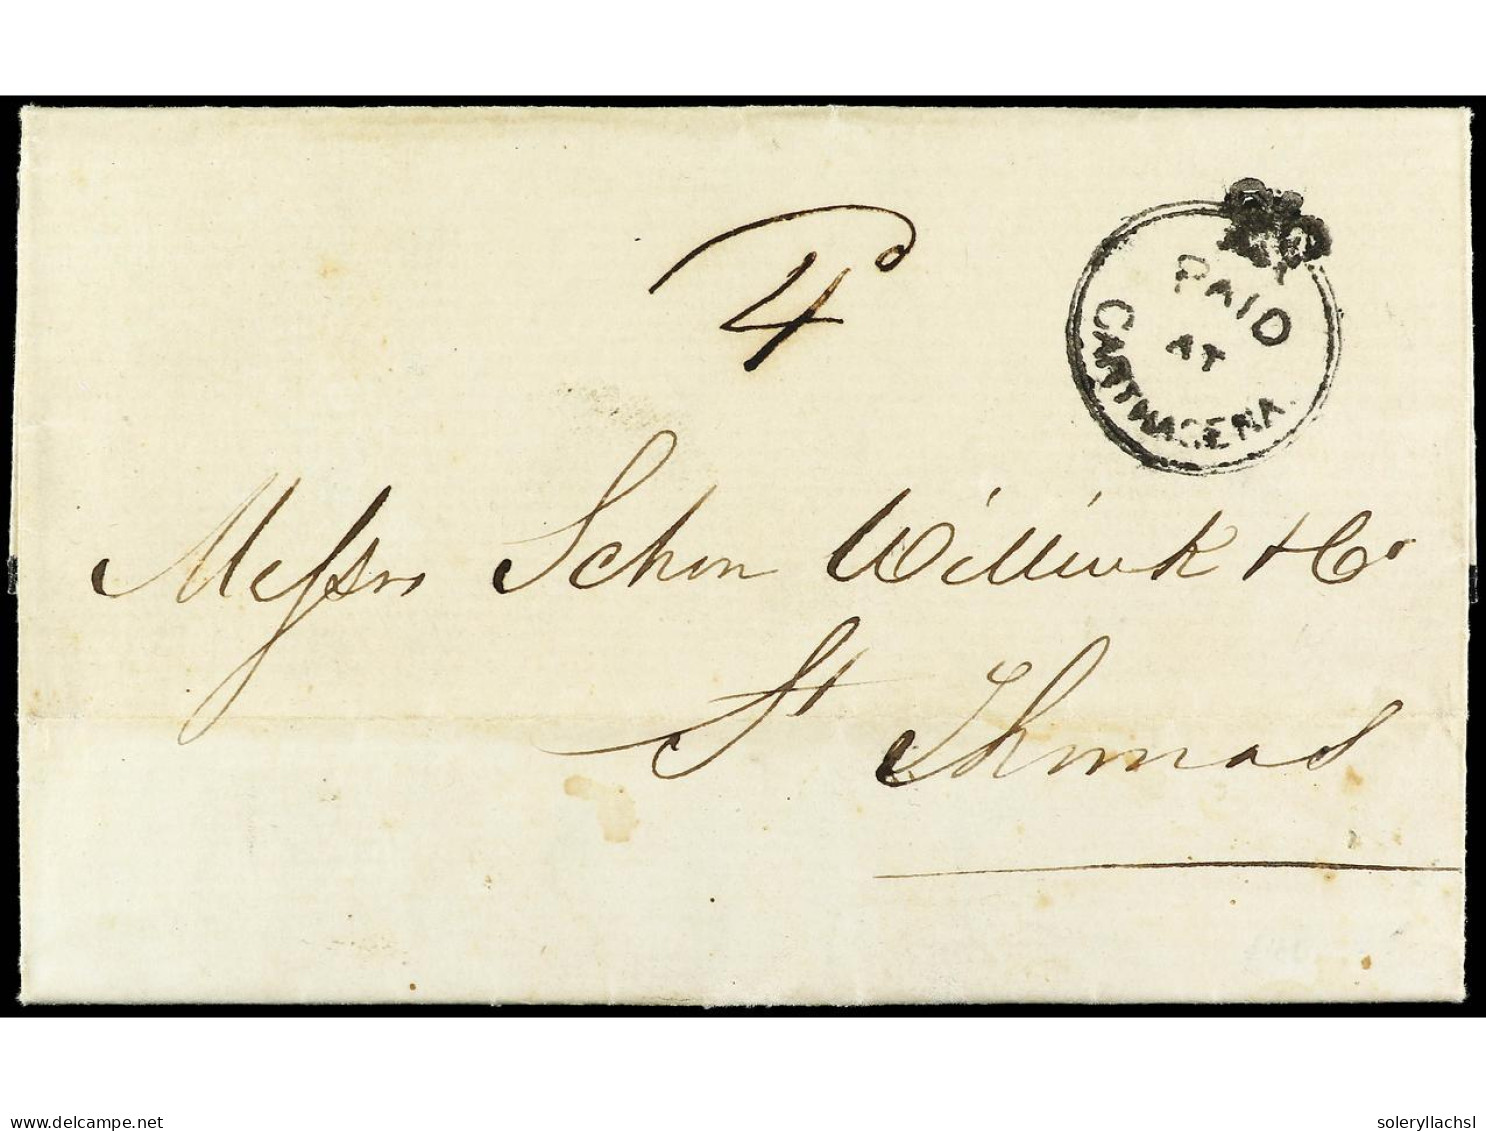 4d
PAID
AT
CARTHAGENA.
Messrs Schon Willink & Co
St Thomas
delcampe.net
soleryllachsl